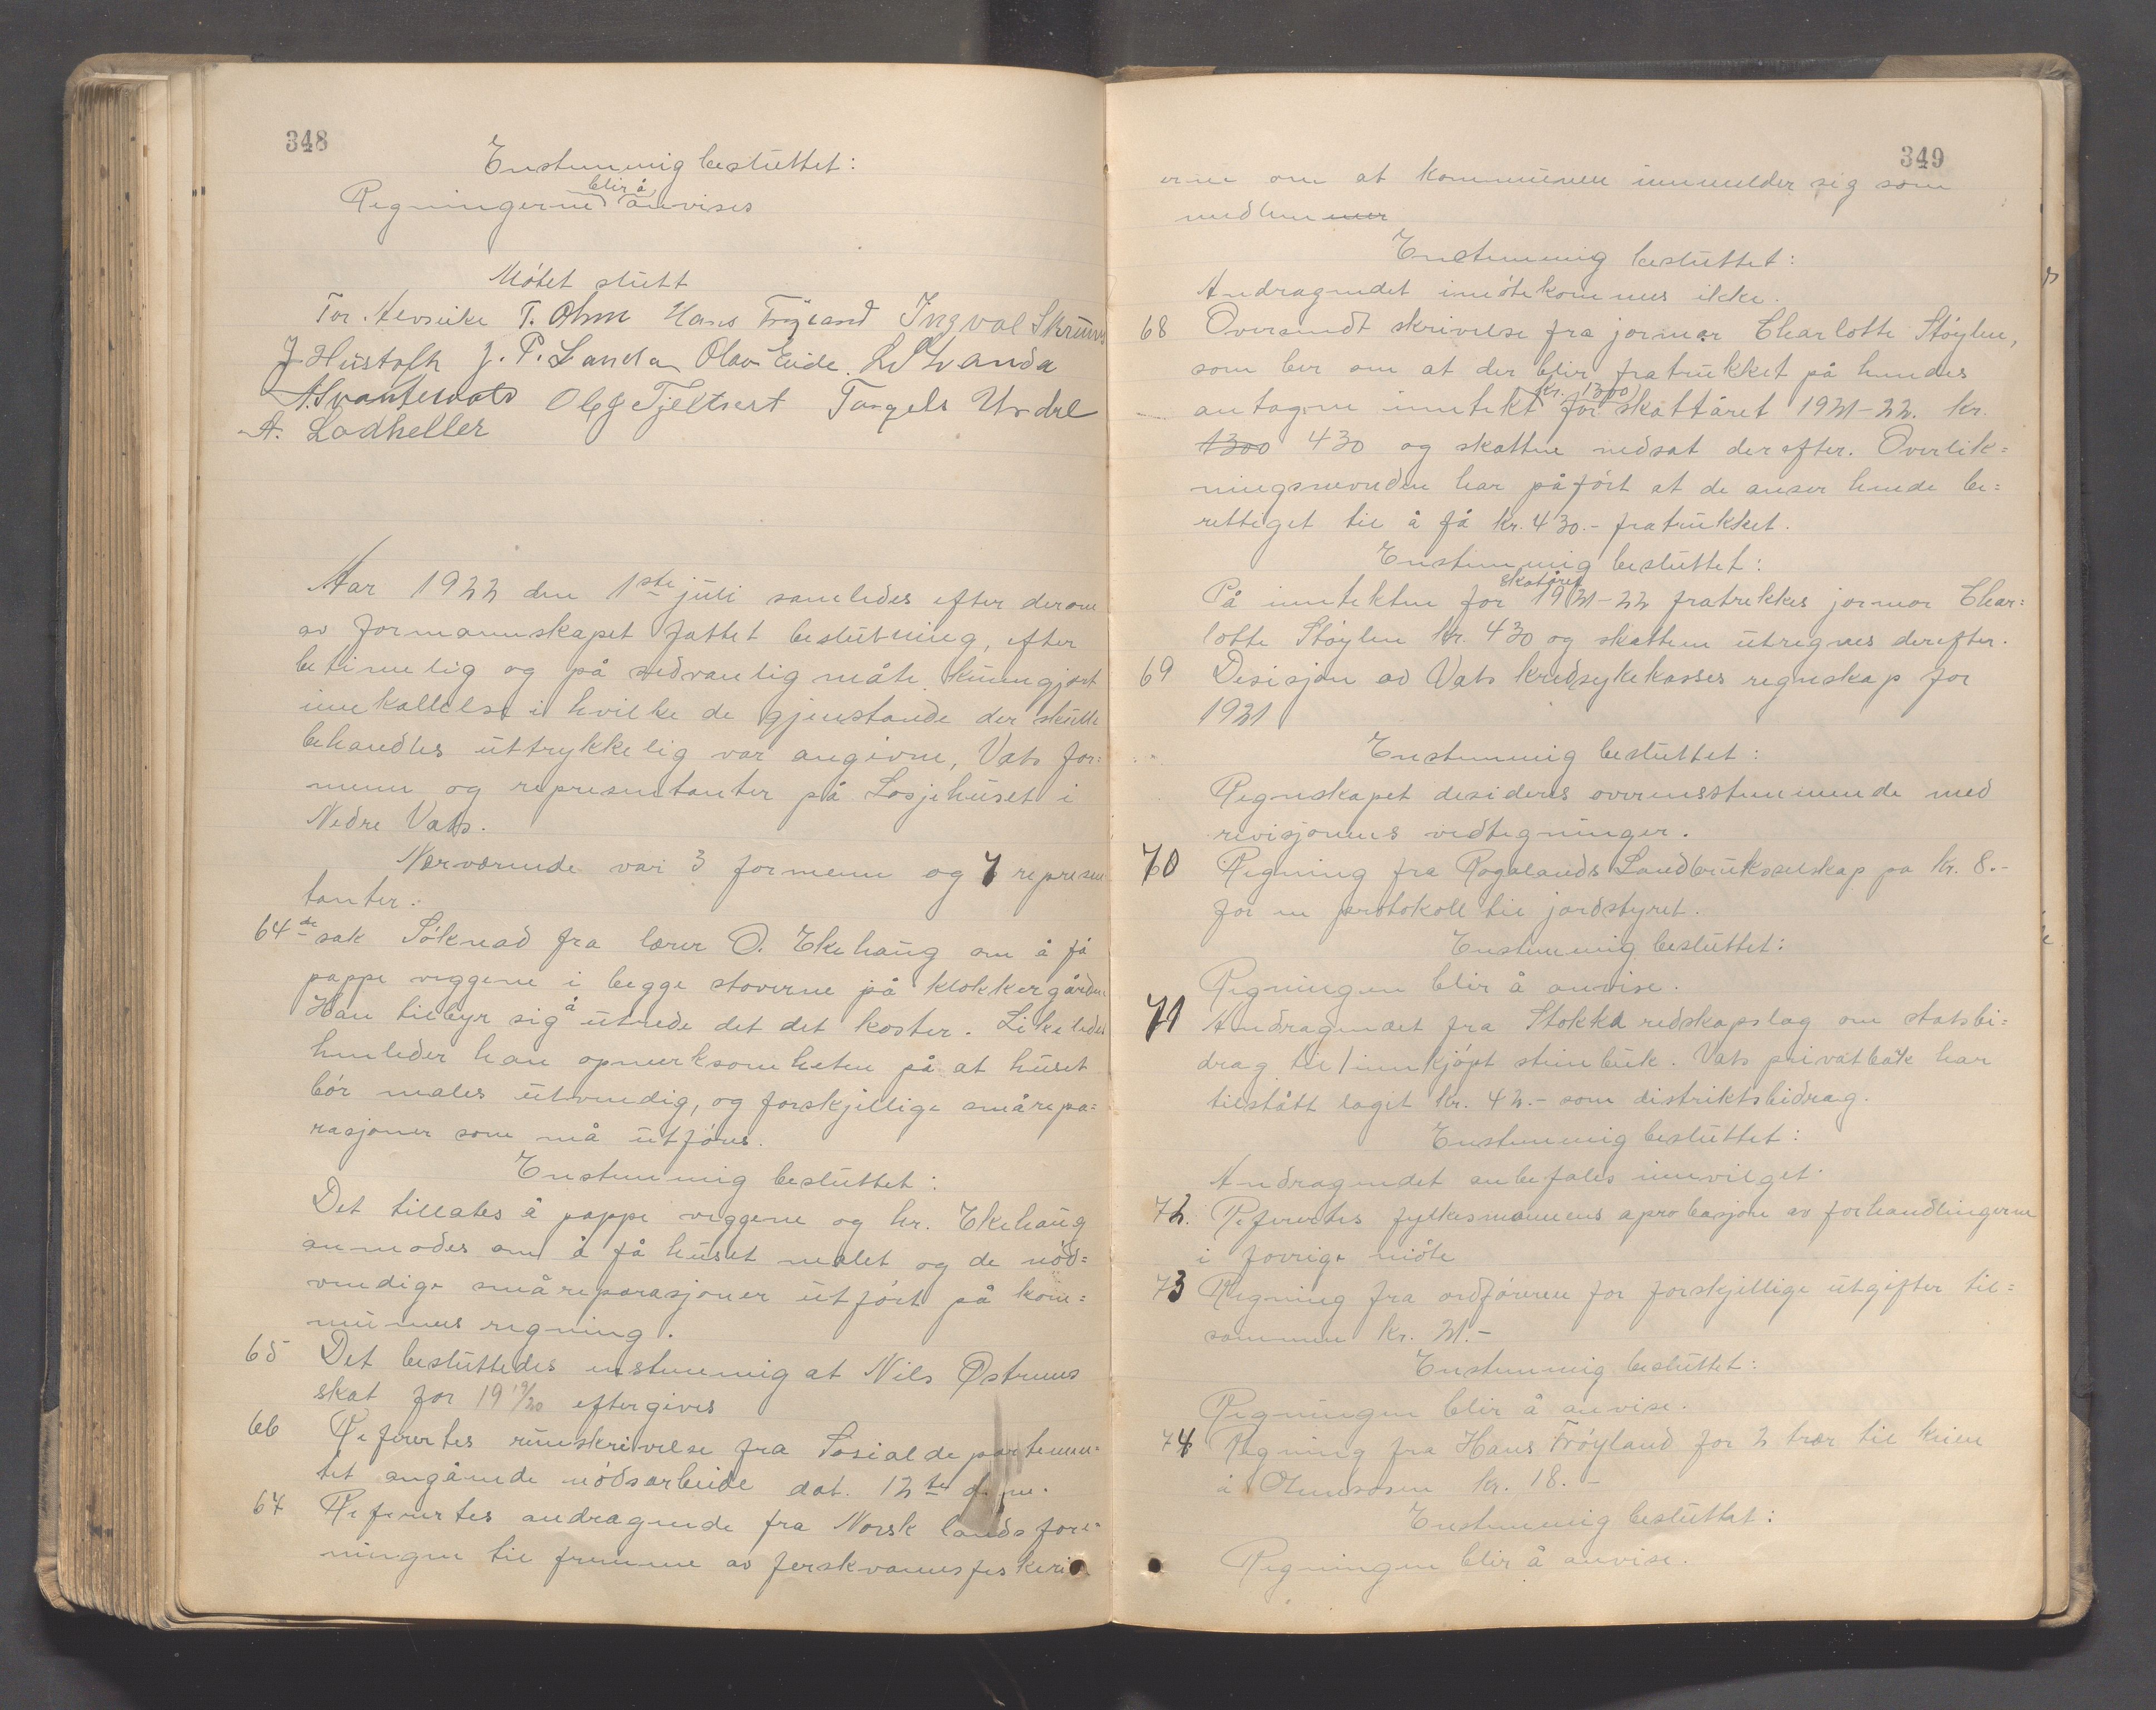 348
Enstemmig besluttet:
blir å
Regningerne anvises
Møtet slutt
Tor. Aevsike T. Ohm Hans Frøyland Ingval Skrunes
J Hustoft J. P. Landa Olav Eide. L Stranda
A. Svantesvold Ole J Fjeltvert Torgels Urdal
A. Lodheller
Aar 1922 den 1ste juli samledes efter derom
av formannskapet fattet beslutning, efter
betimelig og på sedvanlig måte kunngjort
innkallelse i hvilke de gjenstande der skulle
behandles uttrykkelig var angivne, Vats for=
menn og representanter på Losjehuset i
Nedre Vats.
Nærværende var 3 formenn og 7 represen
tanter.
64de sak Søknad fra lærer O. Ekehaug om å få
pappe veggene i begge stoverne på klokkergården
Han tilbyr sig å utrede det det koster. Likeledes
henleder han opmerksomheten på at huset
bør males utvendig, og forskjellige smårepa=
rasjoner som må utføres.
Enstemmig besluttet:
Det tillates å pappe veggene og hr. Ekehaug
anmodes om å få huset malet og de nød=
vendige småreparasjoner utført på kom=
munens regning.
65 Det besluttedes enstemmig at Nils Østrems
skat for 19 19/20 eftergives
66 Refertes runskrivelse fra Sosialdepartemen=
tet angående nødsarbeide dat. 12te
67 Refertes andragende fra Norsk landsfore=
ningen til fremme av ferskvannsfiskeri
349
erne om at kommunen innmelder sig som
medlemmer
Enstemmig besluttet:
Andragendet imøtekommes ikke.
68 Oversendt skrivelse fra jormor Charlotte Støylen,
som ber om at der blir fratrukket på hendes
kr. 1300
antagne inntekt for skattåret 1921-22. kr.
1300 430 og skatten nedsat derefter. Overlik=
ningsnevnden har påført at de anser hende be=
rettiget til å få kr. 430.- fratrukket.
Enstemmig besluttet:
skatåret
På inntekten for 1921-22 fratrekkes jormor Char=
lotte Støylen kr. 430 og skatten utregnes derefter.
69 Desisjon av Vats kredsykekasses regnskap for
1921
Enstemmig besluttet:
Regnskapet desideres overensstemmende med
revisjonens vedtegninger.
70 Regning fra Rogalands Landbruksselskap på kr. 8.-
for en protokoll til jordstyret.
Enstemmig besluttet:
Regningen blir å anvise.
71 Andragendet fra Stokka redskapslag om statsbi=
drag til innkjøpt steinbuk. Vats privatbank har
tilstått laget kr. 42.- som distriktsbidrag.
Enstemmig besluttet:
Andragendet anbefales innvilget
72. Refertes fylkesmannens aprobasjon av forhandlingerne
i forrige møte
73 Regning fra ordføreren for forskjellige utgifter til=
sammen kr. 21.-
Enstemmig besluttet:
Regningen blir å anvise.
74 Regning fra Hans Frøyland for 2 trær til kaien
i kr. 18.-
Enstemmig besluttet:
Regningen blir å anvise.